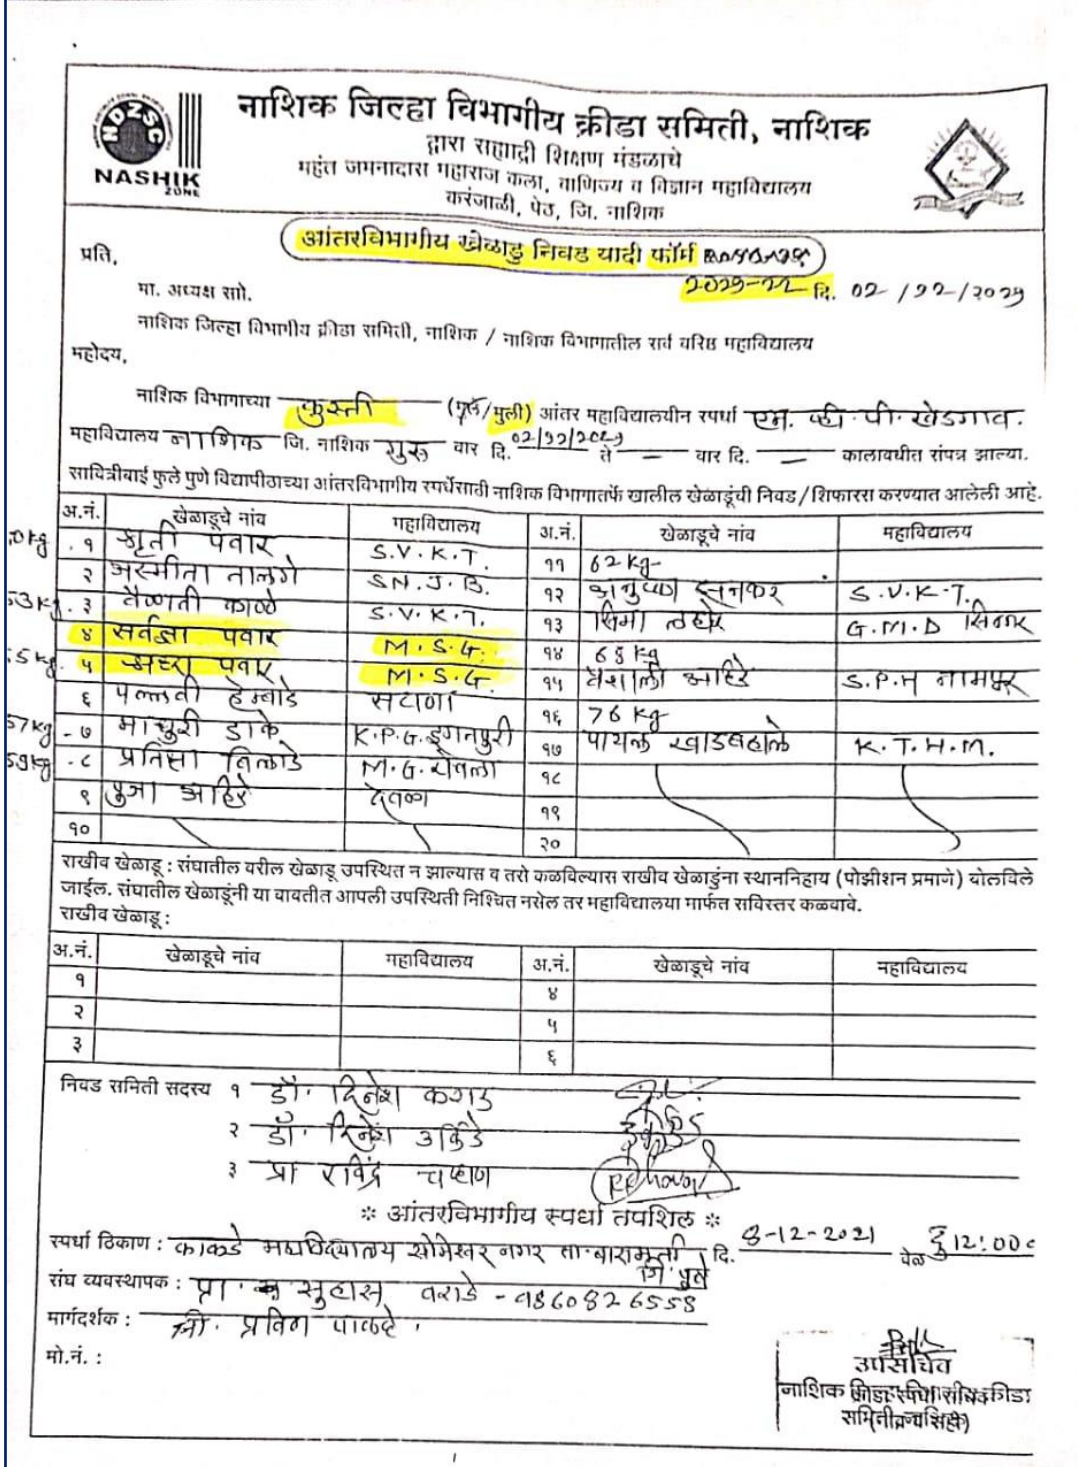 NDZSC
NASHIK
ZONE
नाशिक जिल्हा विभागीय क्रीडा समिती, नाशिक
द्वारा सह्याद्री शिक्षण मंडळाचे
महंत जमनादास महाराज कला, वाणिज्य व विज्ञान महाविद्यालय
करंजाळी, पेठ, जि. नाशिक
आंतरविभागीय खेळाडु निवड यादी फॉर्म
प्रति,
२०२१-२२ दि. ०२ /१२/२०२१
मा. अध्यक्ष सो.
नाशिक जिल्हा विभागीय क्रीडा समिती, नाशिक / नाशिक विभागातील सर्व वरिष्ठ महाविद्यालय
महोदय,
नाशिक विभागाच्या कुस्ती (मुले/मुली) आंतर महाविद्यालयीन स्पर्धा एम. व्ही. पी. खेडगाव.
महाविद्यालय नाशिक जि. नाशिक गुरु वार दि. ०२/१२/२०२१ ते — वार दि. — कालावधीत संपन्न झाल्या.
सावित्रीबाई फुले पुणे विद्यापीठाच्या आंतरविभागीय स्पर्धेसाठी नाशिक विभागातर्फे खालील खेळाडूंची निवड/शिफारस करण्यात आलेली आहे.
अ.नं. खेळाडूचे नांव महाविद्यालय अ.नं. खेळाडूचे नांव महाविद्यालय
0kg १ श्रृती पवार S.V.K.T. ११ 62 kg
२ अस्मीता तालगे SN.J.B. १२ झनकर S.V.K.T.
53kg ३ वैष्णवी काळे S.V.K.T. १३ सिमा G.M.D सिन्नर
४ पवार M.S.G. १४ 68 kg
5kg ५ पवार M.S.G. १५ वैशाली आहिरे S.P.H नामपूर
६ पल्लवी हेम्बाडे सटाणा १६ 76 kg
57kg ७ माधुरी डाके K.P.G.इगतपुरी १७ पायल खाडबहाले K.T.H.M.
59kg ८ प्रतिक्षा M.G.येवला १८
९ पुजा आहिरे देवळा १९
१० २०
राखीव खेळाडू : संघातील वरील खेळाडू उपस्थित न झाल्यास व तसे कळविल्यास राखीव खेळाडुंना स्थाननिहाय (पोझीशन प्रमाणे) बोलविले
जाईल. संघातील खेळाडूंनी या बाबतीत आपली उपस्थिती निश्चित नसेल तर महाविद्यालया मार्फत सविस्तर कळवावे.
राखीव खेळाडू :
अ.नं. खेळाडूचे नांव महाविद्यालय अ.नं. खेळाडूचे नांव महाविद्यालय
१ ४
२ ५
३ ६
निवड समिती सदस्य १ डॉ. दिनेश कराड
२ डॉ. दिनेश उकिर्डे
३ प्रा रविंद्र चव्हाण
* आंतरविभागीय स्पर्धा तपशिल *
स्पर्धा ठिकाण : काकडे महाविद्यालय सोमेश्वर नगर ता. बारामती जि. पुणे दि. 8-12-2021 वेळ 12:00
संघ व्यवस्थापक : प्रा सुहास वराडे - 9860826558
मार्गदर्शक : श्री. प्रविण पाळदे.
मो.नं. :
उपसचिव